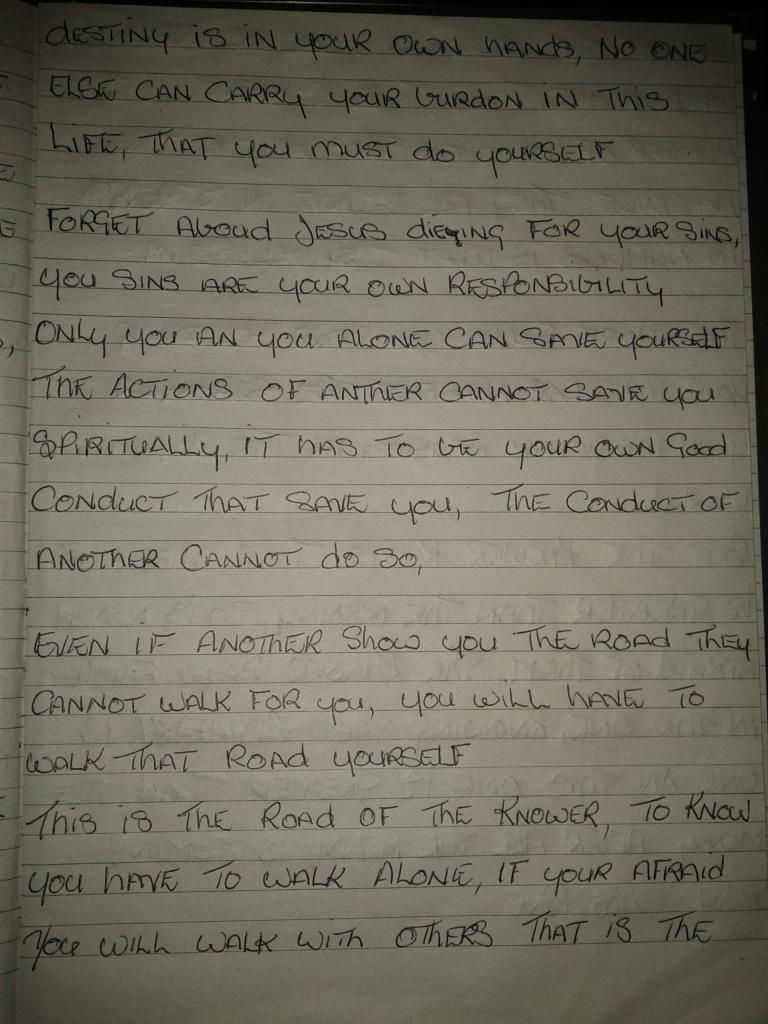 DESTINY IS IN YOUR OWN HANDS, NO ONE
ELSE CAN CARRY YOUR BURDON IN THIS
LIFE, THAT YOU MUST DO YOURSELF
FORGET ABOUD JESUS DIEYING FOR YOUR SINS,
YOU SINS ARE YOUR OWN RESPONSIBILITY
ONLY YOU AN YOU ALONE CAN SAVE YOURSELF
THE ACTIONS OF ANTHER CANNOT SAVE YOU
SPIRITUALLY, IT HAS TO BE YOUR OWN GOOD
CONDUCT THAT SAVE YOU, THE CONDUCT OF
ANOTHER CANNOT DO SO,
EVEN IF ANOTHER SHOW YOU THE ROAD THEY
CANNOT WALK FOR YOU, YOU WILL HAVE TO
WALK THAT ROAD YOURSELF
THIS IS THE ROAD OF THE KNOWER, TO KNOW
YOU HAVE TO WALK ALONE, IF YOUR AFRAID
YOU WILL WALK WITH OTHERS THAT IS THE